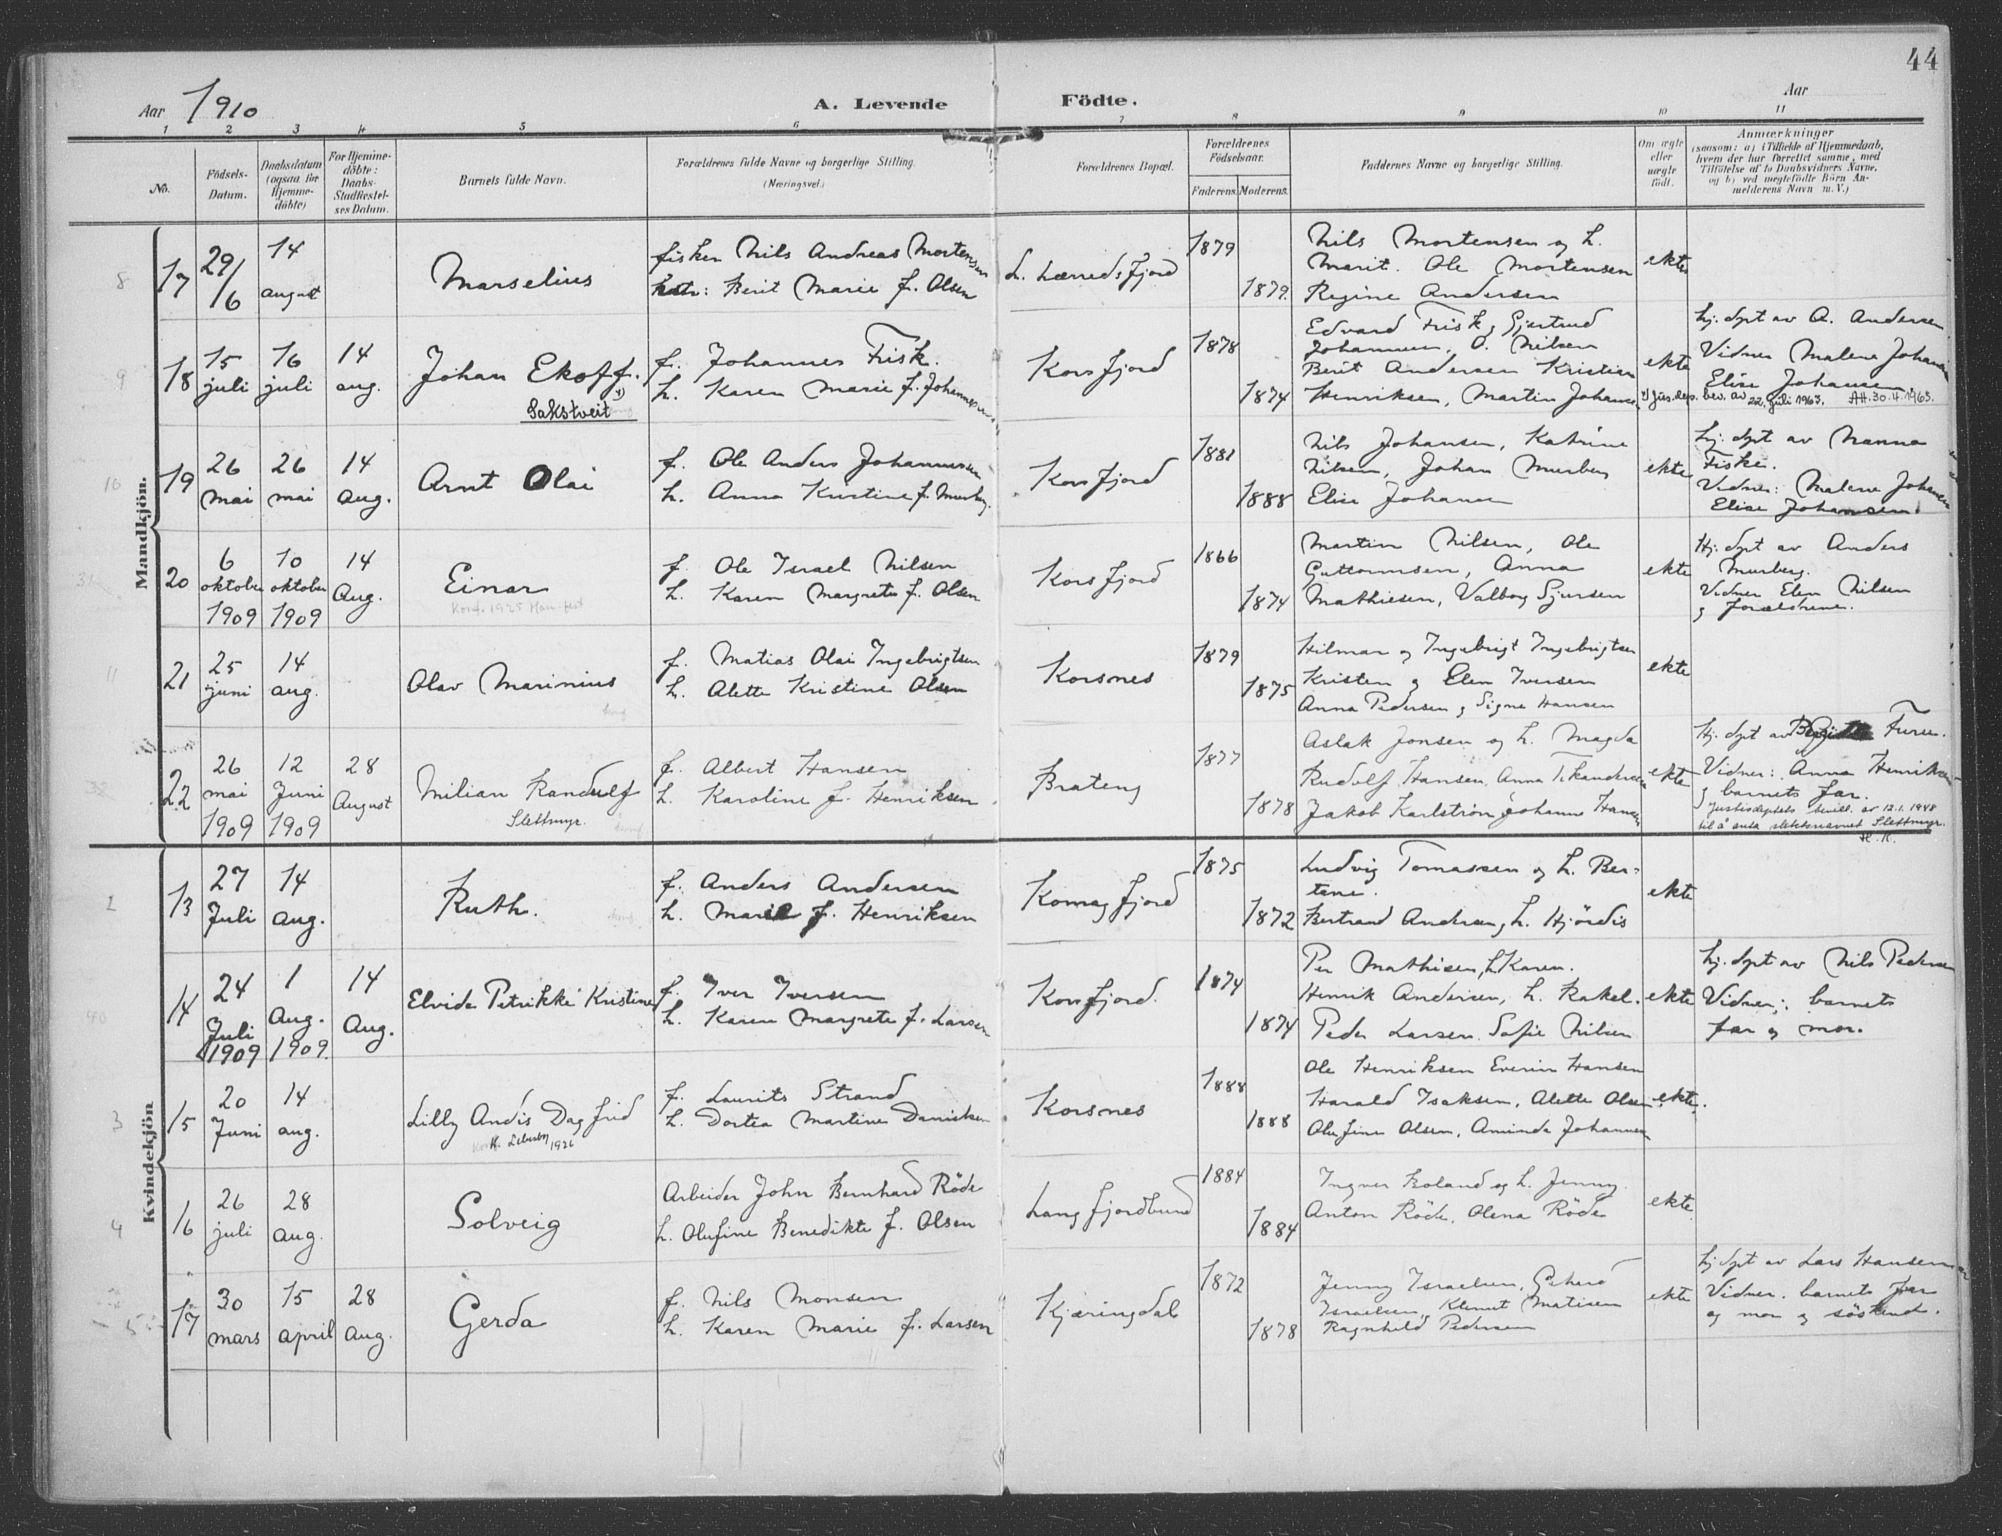 44
Aar 1910
A. Levende Födte.
Aar
1 2 3 4 5 6 7 8 9 10 11
No.
Födsels-Datum.
Daabsdatum (ogsaa for Hjemme-döbte)
For Hjemme-döbte: Daabs-Stadfæstel-ses Datum.
Barnets fulde Navn.
Forældrenes fulde Navne og borgerlige Stilling.
(Næringsvei.)
Forældrenes Bopæl.
Forældrenes Födselsaar.
Faderens. Moderens.
Faddernes Navne og borgerlige Stilling.
Om ægte eller uægte födt.
Anmærkninger
(saasom: a) i Tilfælde af Hjemmedaab,
hvem der har forrettet samme, med
Tilföielse af to Daabsvidners Navne,
og b) ved uægtefödte Börn An-
melderens Navn m. V.)
Mandkjön.
8
17 29/6 14 august
Marselius
fisker Nils Andreas Mortensen
hstr: Berit Marie f. Olsen
L. Lerredsfjord
1879
1879.
Nils Mortensen og h.
Marit. Ole Mortensen
Regine Andersen
ekte
9
18 15 juli 16 juli 14 aug.
Johan Ekoff.
Sakstveit 1)
f. Johannes Fisk.
h. Karen Marie f. Johannesen
Korsfjord
1878
1874
Edvard Fisk, Gjertrud
Johannesen, O. Nilsen
Berit Andersen Kristian
Henriksen, Martin Johansen
ekte
Hj. dpt av A. Andersen
Vidner Malene Johansen
Elise Johansen.
1) Jus.dep. bev. av 22. juli 1963. AH. 30.4.1963.
10
19 26 mai 26 mai 14 aug.
Arnt Olai
f. Ole Anders Johannesen
h. Anna Kristine f. Murberg
Korsfjord
1881
1888
Nils Johansen, Katrine
Nilsen, Johan Murberg
Elise Johansen
ekte
Hj. dpt av Nanna
Fiske.
Vidner: Malene Johansen
Elise Johansen.
31
20 6 oktober 1909 10 oktober 1909 14 Aug.
Einar
Konf. 1925
f. Ole Israel Nilsen
h. Karen Margrete f. Olsen
Korsfjord
1866
1874
Martin Nilsen, Ole
Guttormsen, Anna
Mathiesen, Valborg Sjursen
ekte
Hj. dpt av Anders
Murberg.
Vidner Elen Nilsen
og forældrene.
11
21 25 juni 14 aug.
Olav Marinius
f. Matias Olai Ingebrigtsen
h. Alette Kristine Olsen
Korsnes
1879
1875
Hilmar og Ingebrigt Ingebrigtsen
Kristen og Elen Iversen
Anna Pedersen, Signe Hansen
ekte
32
22 26 mai 1909 12 Juni 1909 28 August
Milian Randulf
Slettmyr.
f. Albert Hansen
h. Karoline f. Henriksen
Brateng
1877
1878
Aslak Jonsen og h. Magda
Rudolf Hansen. Anna
Jakob Karlström Johanne Hansen
ekte
Hj. dpt av Furu.
Vidner: Anna Henriksen
og barnets far.
Justisdeptets bevill. av 12.1.1948
til å anta slektsnavnet Slettmyr.
H. K.
Kvindekjön
13 27 Juli 14 aug.
Ruth.
f. Anders Andersen
h. Marie f. Henriksen
Komagfjord
1875
1872
Ludvig Tomassen og h. Ber-
tine.
Bertrand Andersen, h. Hjördis
ekte
40
14 24 Juli 1909 1 Aug. 1909. 14 Aug.
Elvida Petrikke Kristine
f. Iver Iversen
h. Karen Margrete f. Larsen
Korsfjord.
1874
1874
Per Mathisen, h Karen.
Henrik Andersen, h. Rakel.
Peder Larsen. Sofie Nilsen
ekte
hj. dpt av Nils Pedersen
Vidner: barnets
far og mor.
3
15 20 Juni 14 aug.
Lilly Andis Dagfrid
1926
f. Laurits Strand
h. Dortea Martine Danielsen
Korsnes
1888
1888
Ole Henriksen Everin Hansen
Harald Isaksen, Alette Olsen
Olufine Olsen, Aminda Johannesen
ekte.
4
16 26 juli 28 aug.
Solveig
Arbeider John Bernhard Röde
h. Olufine Benedikte f. Olsen
Langfjordbund
1884
1884
Ingver Roland og h. Jenny.
Anton Röde, Olena Röde
ekte
5
17 30 mars 15 april 28 aug.
Gerda
f. Nils Monsen
h. Karen Marie f. Larsen
Kjæringdal
1872
1878
Jenny Israelsen,
Israelsen, Klemet Matisen
Ragnhild Pedersen
ekte
hj dpt av Lars Hansen
Vidner. barnets far
og mor og söskend.